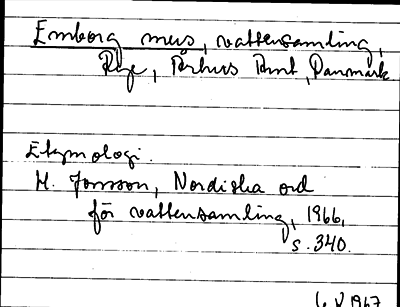 Emborg mers, vattensamling,
Rye, Århus Amt, Danmark
Etymologi.
H. Jonsson, Nordiska ord
för vattensamling, 1966,
s. 340.
6.V 1967